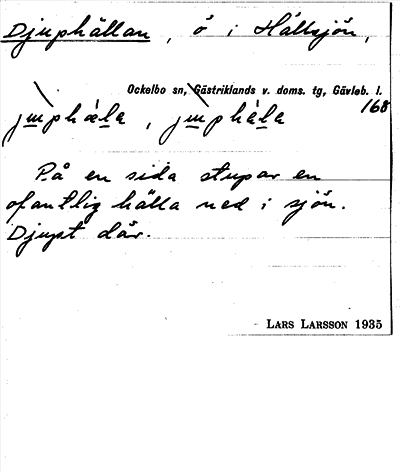 Djuphällan, ö i Hällsjön,
Ockelbo sn, Gästriklands v. doms. tg, Gävleb. l.
168
På en sida stupar en
ofantlig hälla ned i sjön.
Djupt där.
LARS LARSSON 1935